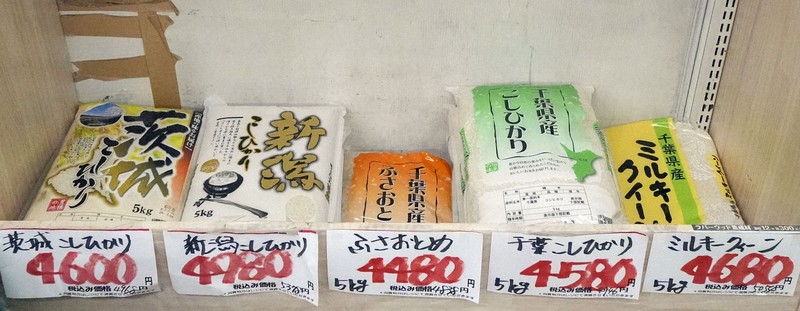 茨城
こしひかり
5kg
新潟
こしひかり
5kg
千葉県産
ふさおと
千葉県産
こしひかり
千葉県産
ミルキー
クイー
茨城こしひかり
4600
税込み価格 4968円
新潟こしひかり
4980
税込み価格 5378円
ふさおとめ
4480
5kg 税込み価格 4838円
千葉こしひかり
4580
5kg 税込み価格
ミルキークィーン
4680
5kg 税込み価格